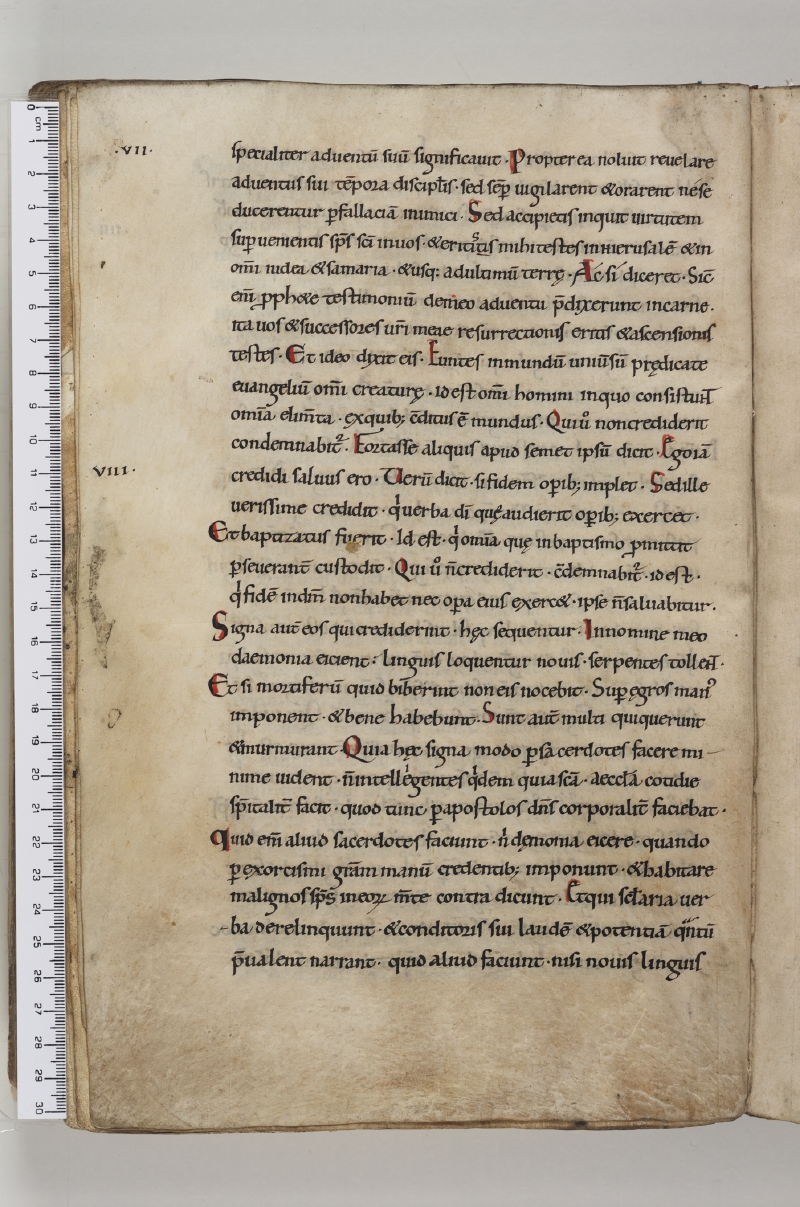 .VII.
specialiter aduentū suū significauit · Propterea noluit reuelare
aduentus sui tēpora discipłis · sed sēp uigilarent &orarent nese
ducerentur ꝑfallaciā inimici · Sed accipietis inquit uirtutem
supuenientis sp̄s sc̄i inuos · &eritis mihi testes inhierusalē &in
om̄i iudea &samaria · &usq: adultimū terrę · Ac si diceret · Sic̄
em̄ ꝓph&e testimoniū demeo aduentu p̄dixerunt incarne ·
ita uos &successores uri meae resurrectionis eritis &ascensionis
testes · Et ideo dixit eis · Euntes inmundū uniūsū prędicate
euangeliū om̄i creaturę · id est om̄i homini inquo consistunt̄
om̄ia elim̄ta · exquib; c̄ditus ē mundus · Qui ů noncrediderit
condemnabit᷑ · Fortasse aliquis apud semet ipsū dicit · Ego iā
.VIII.
credidi saluus ero · Uerū dicit · si fidem opib; implet · Sed ille
uerissime credidit · q̇ uerba dī quę audierit opib; exercet ·
Et baptizatus fuerit · Id est · q̇ omīa quę inbaptismo ꝓmittit
ꝑseuerant̄ custodit · Qui ů n̄crediderit · c̄demnabit᷑ · id est ·
q̇ fidē indnm̄ nonhabet nec opa eius exerc& · ipse n̄saluabitur ·
Signa aut̄ eos qui crediderint · hęc sequentur · Innomine meo
daemonia eicient : linguis loquentur nouis · serpentes tollent̄ ·
Et si mortiferū quid biberint non eis nocebit · Sup ęgros man᷒
imponent · &bene habebunt · Sunt aut̄ multi qui querunt
&murmurant · Quia hęc signa modo ꝑsacerdotes facere mi-
nime uident · n̄intellegentes q̇dem quia sc̄a · aeccłā cotidie
sp̄italit̄ facit · quod tunc ꝑapostolos dn̄s corporalit̄ faciebat ·
Quid em̄ aliud sacerdotes faciunt · n̍ demonia eicere · quando
ꝑexorcismi grām manū credentib; imponunt · &habitare
malignos sp̄s ineoꝝ m̄te contra dicunt · Et qui sc̄łaria uer
ba derelinquunt · &conditoris sui laudē &potentiā qntū
p̄ualent narrant · quid aliud faciunt · nisi nouis linguis